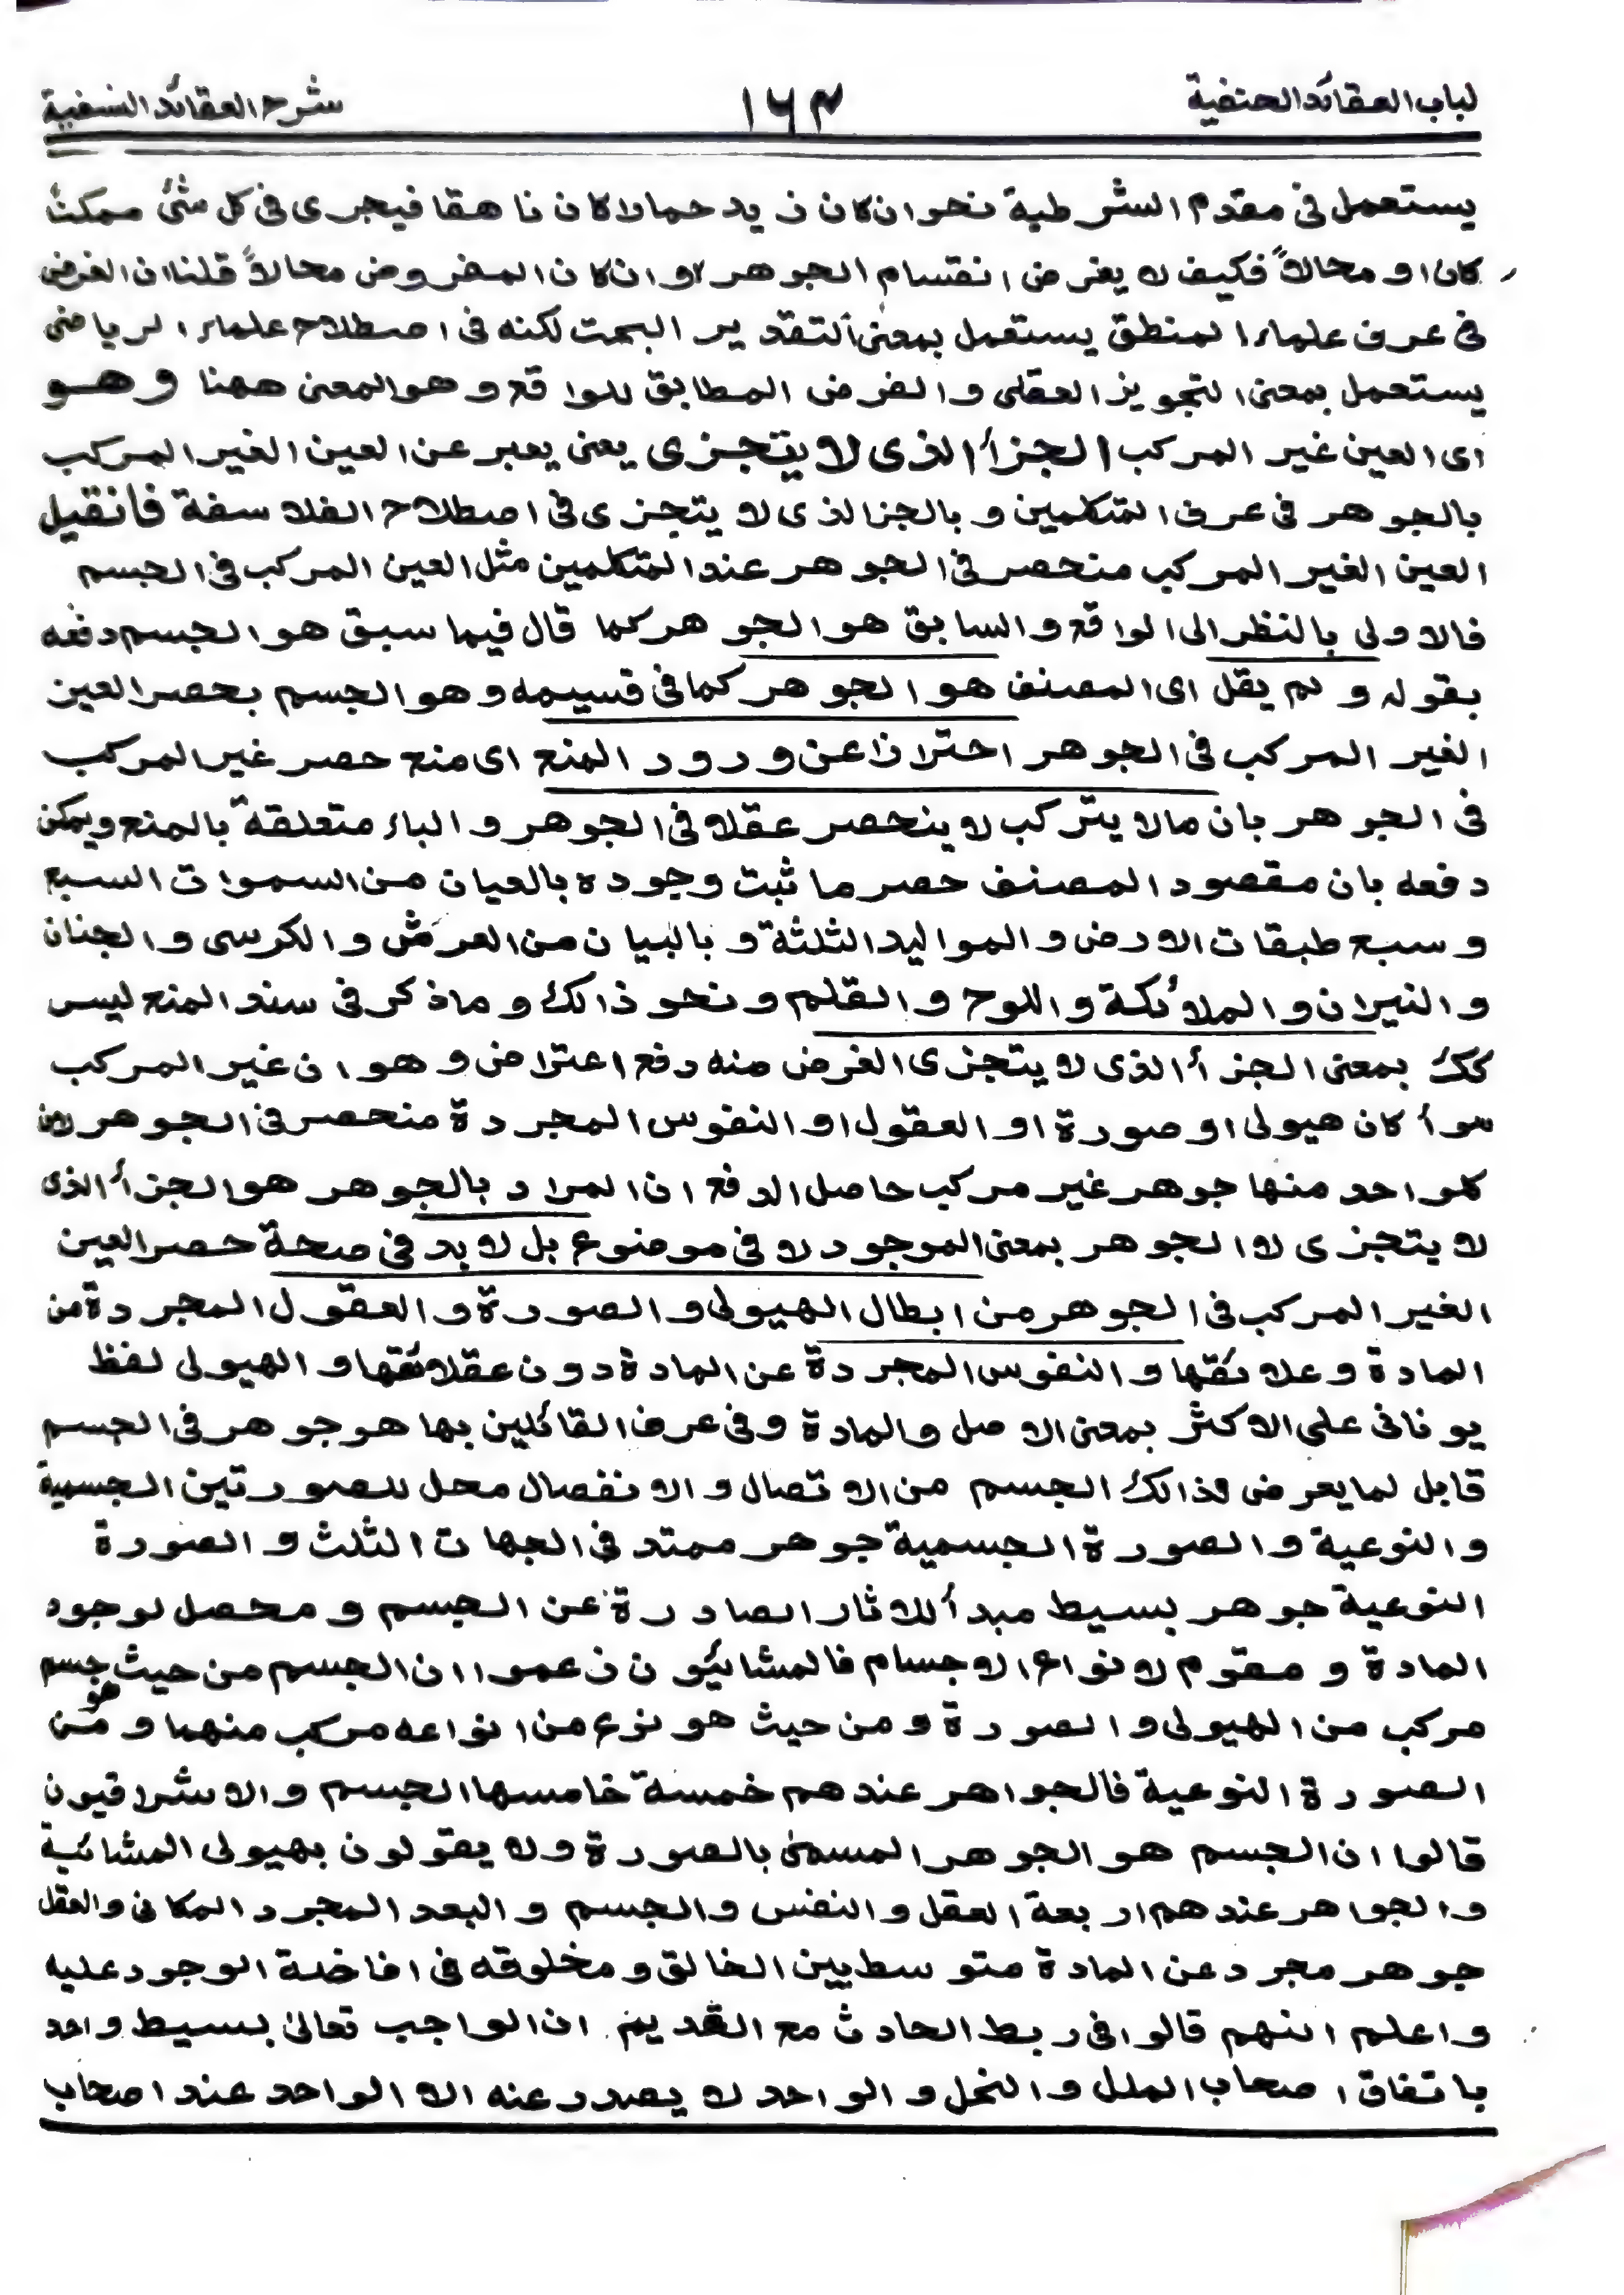 لباب العقائد الحنفية ١٦٣ شرح العقائد النسفية
يستعمل فى مقدم الشرطية نحو ان كان زيد حمارا كان ناهقا فيجرى فى كل شئ ممكنا
كان او محالاً فكيف لا يفرض انقسام الجوهر و ان كان المفروض محالاً قلنا ان الفرض
فى عرف علماء المنطق يستعمل بمعنى التقدير البحت لكنه فى اصطلاح علماء الرياضى
يستعمل بمعنى التجويز العقلى و الفرض المطابق للواقع و هو المعنى ههنا و هو
اى العين غير المركب الجزأ الذى لا يتجزى يعنى يعبر عن العين الغير المركب
بالجوهر فى عرف المتكلمين و بالجزا لذى لا يتجزى فى اصطلاح الفلاسفة فانقيل
العين الغير المركب منحصر فى الجوهر عند المتكلمين مثل العين المركب فى الجسم
فالاولى بالنظر الى الواقع و السابق هو الجوهر كما قال فيما سبق هو الجسم دفعه
بقوله و لم يقل اى المصنف هو الجوهر كما فى قسيمه و هو الجسم بحصر العين
الغير المركب فى الجوهر احترازا عن ورود المنع اى منع حصر غير المركب
فى الجوهر بان مالا يتركب لا ينحصر عقلا فى الجوهر و الباء متعلقة بالمنع ويمكن
دفعه بان مقصود المصنف حصر ما ثبت وجوده بالعيان من السموات السبع
و سبع طبقات الارض و المواليد الثلثة و بالبيان من العرش و الكرسى و الجنان
و النيران و الملائكة و اللوح و القلم و نحو ذالك و ماذكر فى سند المنع ليس
كك بمعنى الجزأ الذى لا يتجزى الغرض منه دفع اعتراض و هو ان غير المركب
سوأ كان هيولى او صورة او العقول او النفوس المجردة منحصر فى الجوهر لان
كلواحد منها جوهر غير مركب حاصل الدفع ان المراد بالجوهر هو الجزأ الذى
لا يتجزى لا الجوهر بمعنى الموجود لا فى موضوع بل لا بد فى صحة حصر العين
الغير المركب فى الجوهر من ابطال الهيولى و الصورة و العقول المجردة من
المادة و علائقها و النفوس المجردة عن المادة دون عقلائقها و الهيولى لفظ
يونانى على الاكثر بمعنى الاصل والمادة و فى عرف القائلين بها هو جوهر فى الجسم
قابل لما يعرض لذالك الجسم من الاتصال و الانفصال محل للصورتين الجسمية
و النوعية و الصورة الجسمية جوهر ممتد فى الجهات الثلث و الصورة
النوعية جوهر بسيط مبدأ للاثار الصادرة عن الجسم و محصل لوجود
المادة و مقوم لانواع الاجسام فالمشائيون زعموا ان الجسم من حيث هو جسم
مركب من الهيولى و الصورة و من حيث هو نوع من انواعه مركب منهما و من
الصورة النوعية فالجواهر عندهم خمسة خامسها الجسم و الاشراقيون
قالوا ان الجسم هو الجوهر المسمى بالصورة و لا يقولون بهيولى المشائية
و الجواهر عندهم اربعة العقل و النفس و الجسم و البعد المجرد المكانى و العقل
جوهر مجرد عن المادة متوسط بين الخالق و مخلوقه فى افاضة الوجود عليه
و اعلم انهم قالوا فى ربط الحادث مع القديم ان الواجب تعالىٰ بسيط واحد
باتفاق اصحاب الملل و النحل و الواحد لا يصدر عنه الا الواحد عند اصحاب